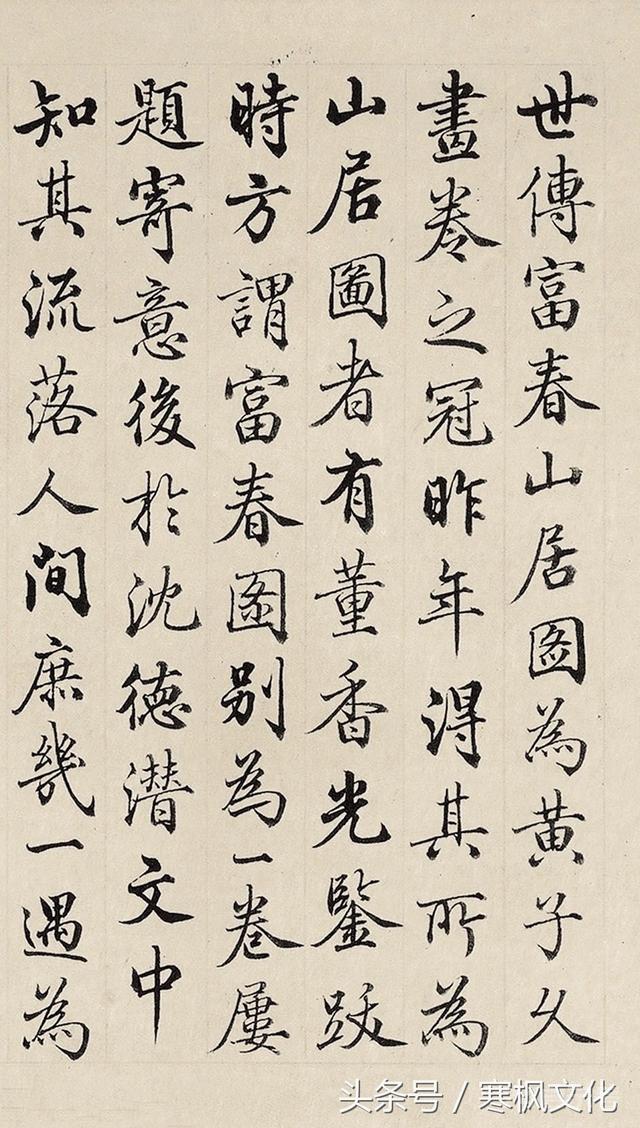 世傳富春山居圖為黄子久
畫卷之冠昨年得其所為
山居圖者有董香光鑒跋
時方謂富春图别為一卷屢
題寄意後於沈德潜文中
知其流落人間庶幾一遇為
头条号 / 寒枫文化